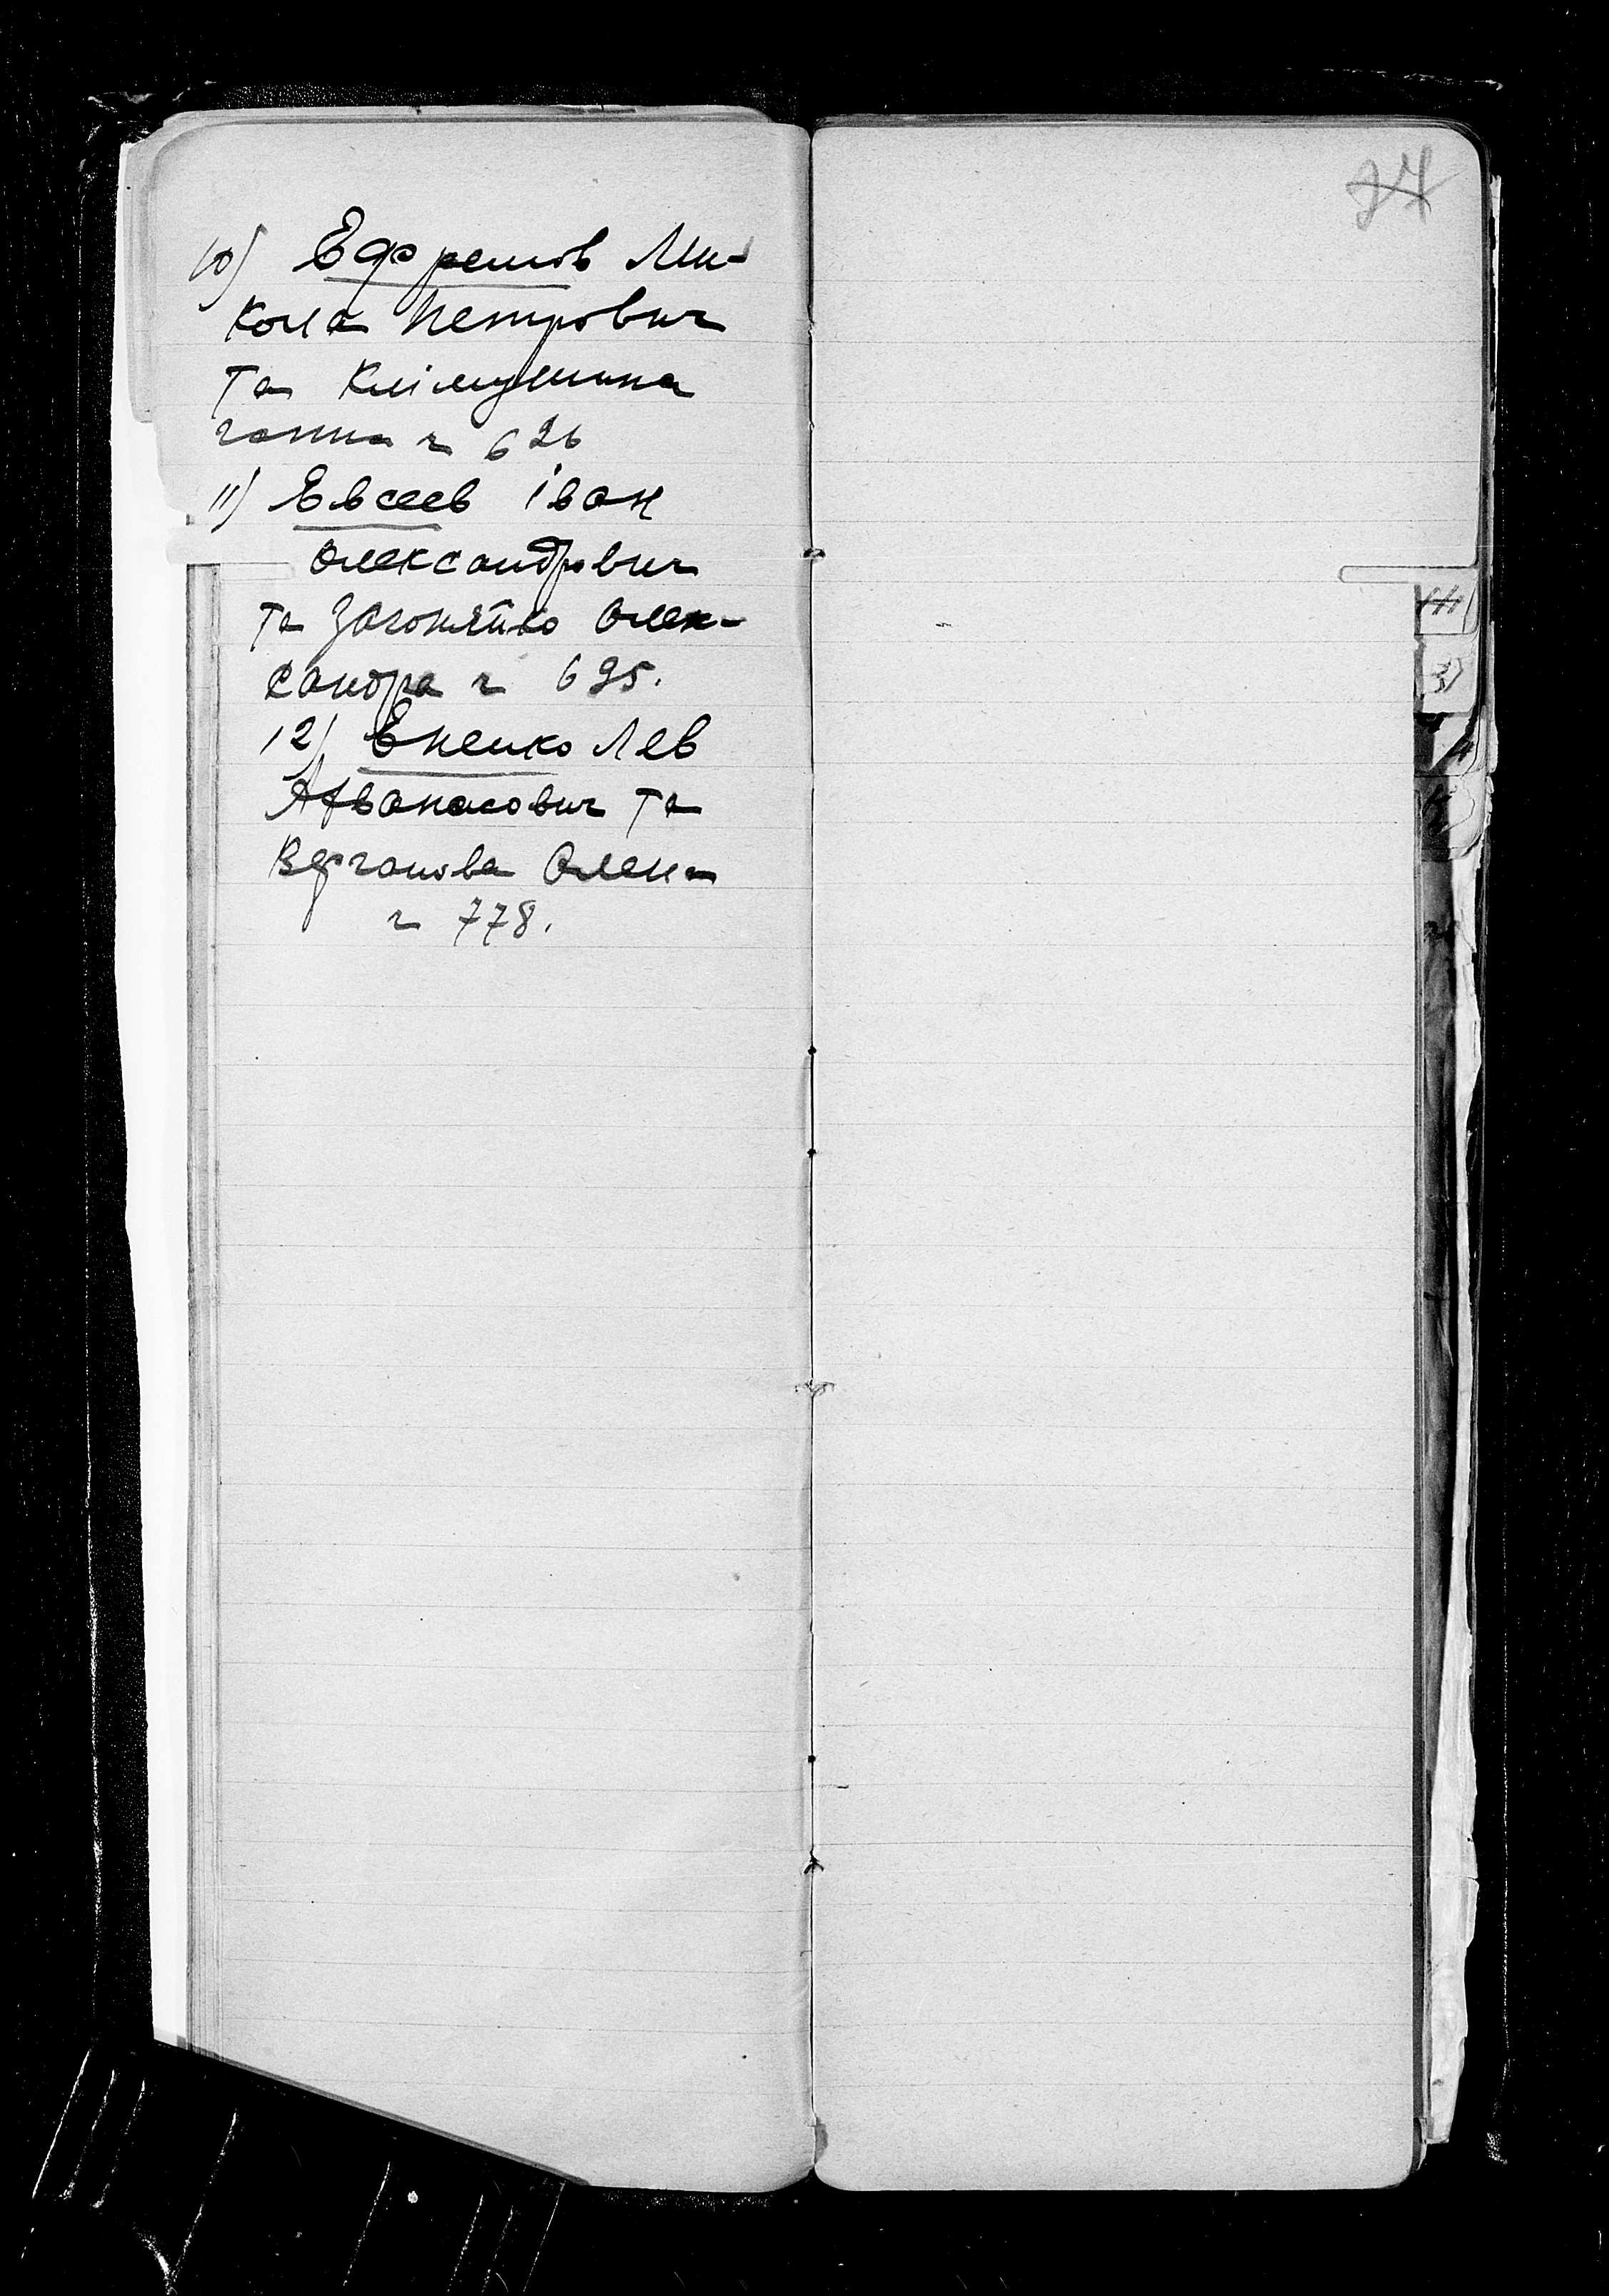 10) Ефремов Ми-
кола Петрович
та Клімушина
ганна ч 626
11) Евсеев Іван
Олександрович
та Загоняйко Олек-
сандра ч 695.
12) Ененко Лев
Афванасович та
Вергонова Олена
ч 778.